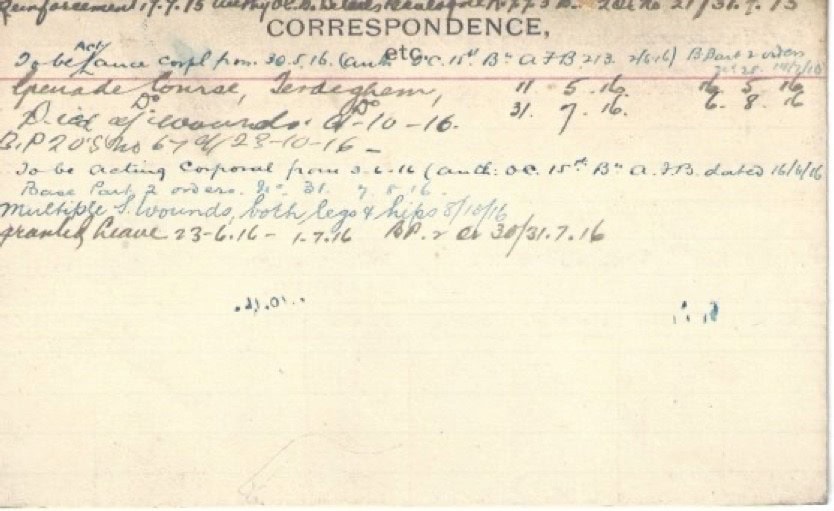 Reinforcement 17.7.15
CORRESPONDENCE,
etc.
To be Act/ Lance Corpl from 30.5.16. (auth. O.C. 15th Bn A.F.B 213. 2/6/16) B Part 2 orders
Grenade Course, Terdeghem, 11 5 .16. 16 5 16
Do Do 31. 7 .16. 6. 8. 16
Died of wounds -10-16.
B.P 2 O's No 67 23-10-16 -
To be acting Corporal from 3-6-16 (auth: O.C. 15th Bn A.F.B. dated 16/6/16
Base Part 2 orders. No. 31. 7.8.16.
Multiple S. wounds, both legs & hips 8/10/16
granted leave 23-6.16 - 1.7.16 B.P. 2 Or 30/31.7.16